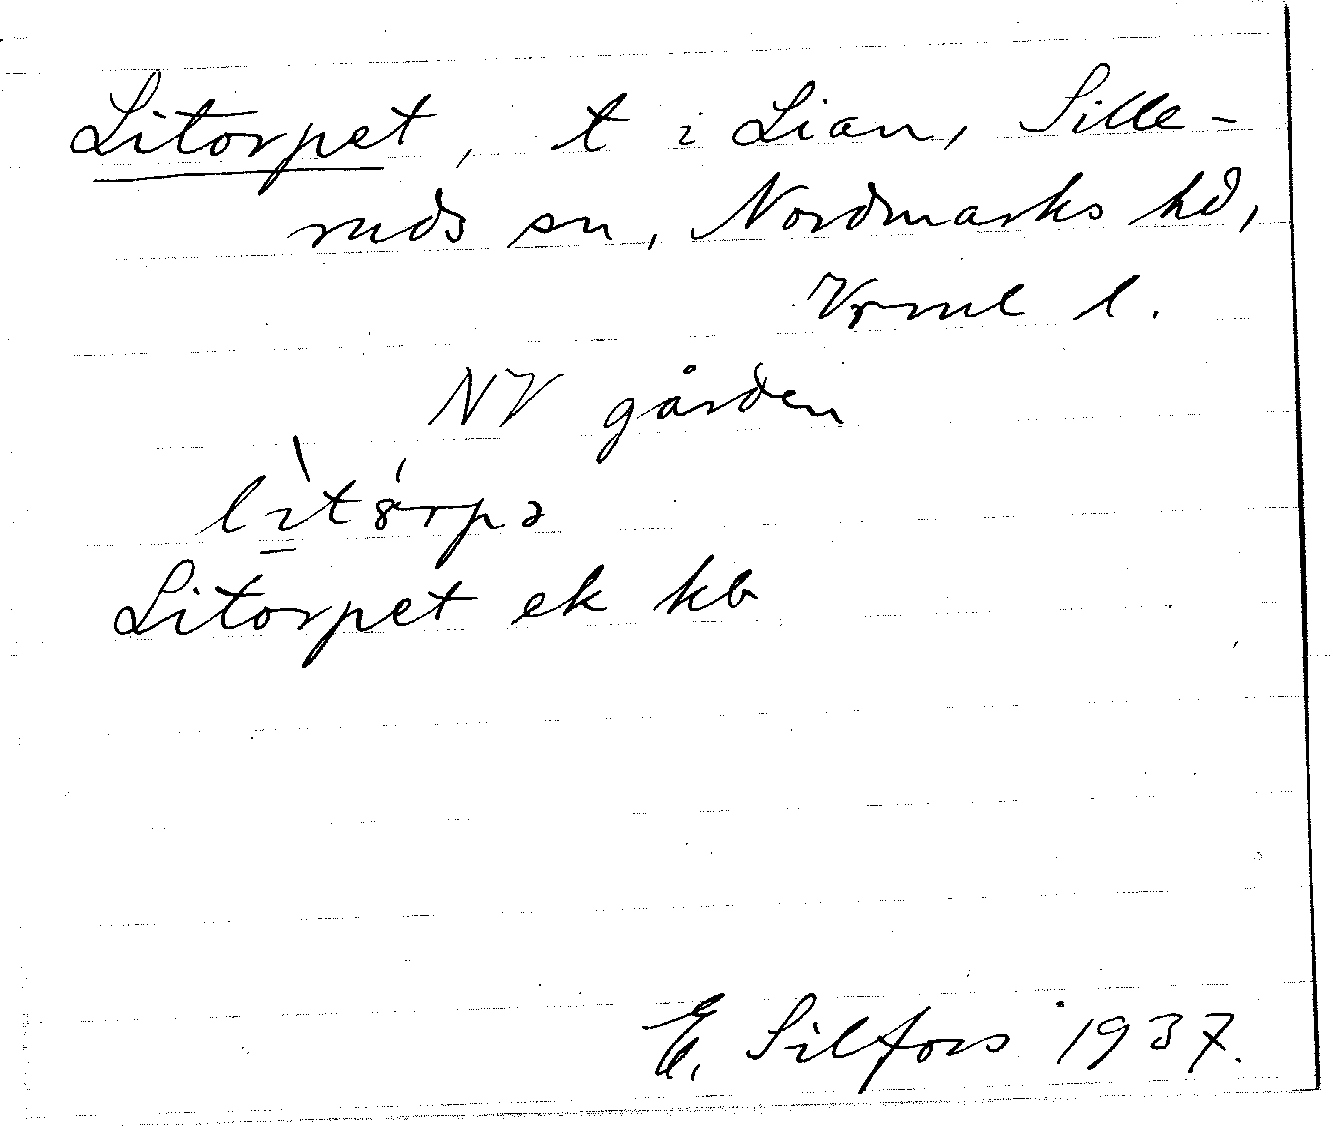 Litorpet, t i Lian, Sille-
ruds sn, Nordmarks hd,
Vrml l.
NV gården
Litorpet ek kb
E. Silfors 1937.